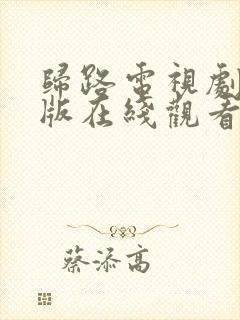 歸路電視劇
版在綫觀看
蔡添高